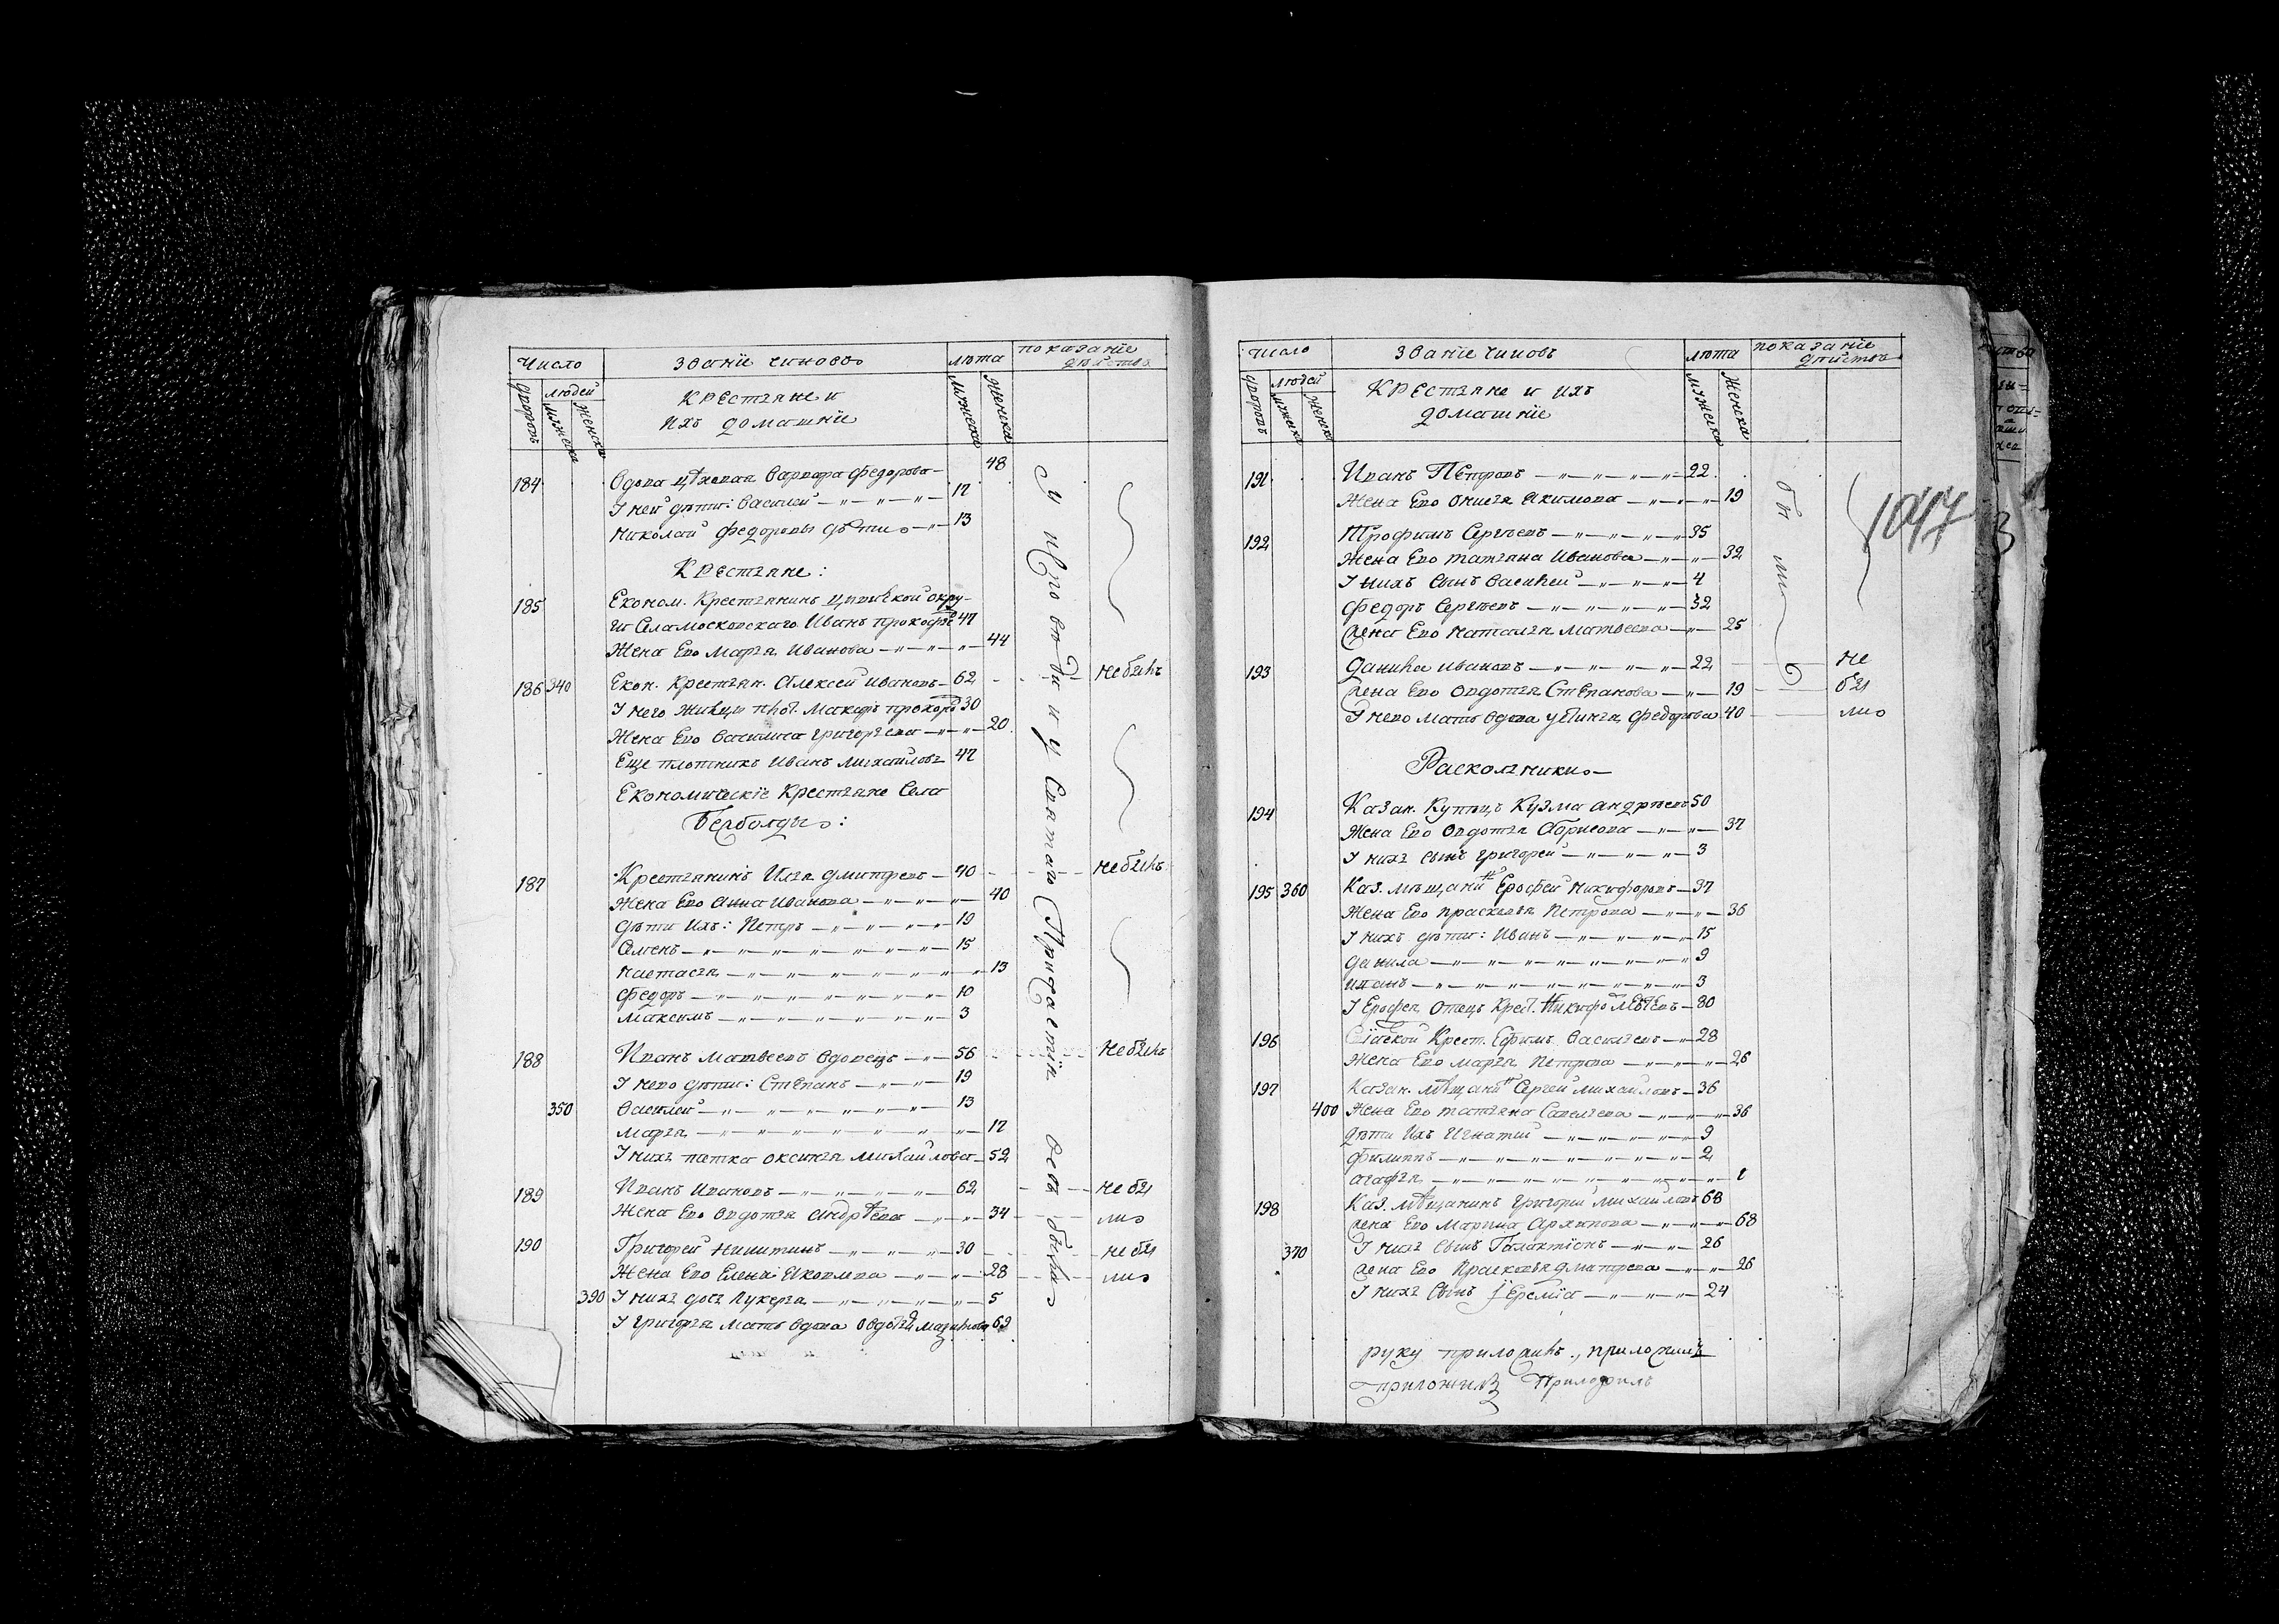 Число
Званіе чиновъ
лѣта
показаніе
дѣйство
дворовъ
людей
мужеска
женска
Крестьяне и
ихъ домашніе
мужеска
женска
184
Вдова цѣховая Варвара Федорова — 48
У ней дѣти: Василей — 17
Николай Федоровы дѣти — 13
Крестьяне:
185
Економ. Крестьянинъ
Села Московскаго Иванъ 47
Жена Ево Марья Иванова — 44
186 340
Екон. Крестьян. Алексей Ивановъ — 62
У него Макаръ 30
Жена Ево Василиса Григорьева — 20
Еще плотникъ Иванъ Михайловъ 47
Економическіе Крестьяне Села
187
Крестьянинъ Илья Дмитревъ — 40
Жена Ево Анна Иванова — 40
Дѣти Ихъ: Петръ — 19
Семенъ — 15
Настасья — 13
Федоръ — 10
Максимъ — 3
188
Иванъ Матвеевъ Вдовецъ — 56
У нево дѣти: Степанъ — 19
350
Василей — 13
Марья — 17
У нихъ тетка Оксинья Михайлова — 52
189
Иванъ Ивановъ — 62
Жена Ево Овдотья Андрѣева — 34
190
Григорей Никитинъ — 30
Жена Ево Елена Яковлева — 28
390 У нихъ дочь Лукерья — 5
У Григорья Мать Вдова Овдотья 69
У исповѣди и у Святаго Причастія всѣ были
не былъ
не былъ
не былъ
не бы
ли
не бы
ли
Число
Званіе чиновъ
лѣта
показаніе
дѣйства
дворовъ
людей
мужеска
женска
Крестьяне и ихъ
домашніе
мужеска
женска
191
Иванъ Петровъ — 22
Жена Ево Онисья Якимова — 19
192
Трофимъ Сергѣевъ — 35
Жена Ево Татьяна Иванова — 32
У нихъ сынъ Василей — 4
Федоръ Сергѣевъ — 32
Жена Ево Наталья Матвеева — 25
193
Данила Ивановъ — 22
Жена Ево Овдотья Степанова — 19
У нево мать вдова Устинья Федорова 40
Раскольники
194
Казан. Купецъ Кузма Андрѣевъ 50
Жена Ево Овдотья Борисова — 37
У нихъ сынъ Григорей — 3
195 360
Каз. мѣщанинъ Ерофей Никифоровъ — 37
Жена Ево Прасковья Петрова — 36
У нихъ дѣти: Иванъ — 15
Данила — 9
Иванъ — 3
У Ерофея Отецъ Крест. Никифоръ — 80
196
Крест. Ефимъ Васильевъ — 28
Жена Ево Марья Петрова — 26
197
Казан. мѣщанинъ Сергей Михайловъ — 36
400 Жена Ево Татьяна Савельева — 36
Дѣти Ихъ Игнатий — 9
Филиппъ — 2
Агафья — 1
198
Каз. мѣщанинъ Григорей Михайловъ 68
Жена Ево Марина Архипова — 68
370
У нихъ сынъ Галактіонъ — 26
Жена Ево Прасковья Дмитрева — 26
У нихъ сынъ Еремѣй — 24
бы ли
не
бы
ли
1047
руку приложилъ, приложилъ
приложилъ Приложилъ